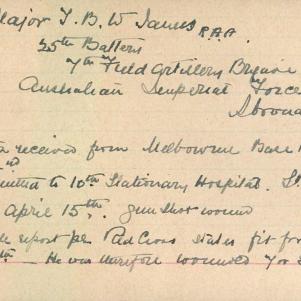 Major T. B. W. James R.A.A.
25th Battery
7th Field Artillery Brigade
Australian Imperial Force
Abroad
received from Melbourne Base
to 10th Stationary Hospital. St
April 15th. Gun shot wound
report per Red Cross states fit for
He was therefore wounded 7 or